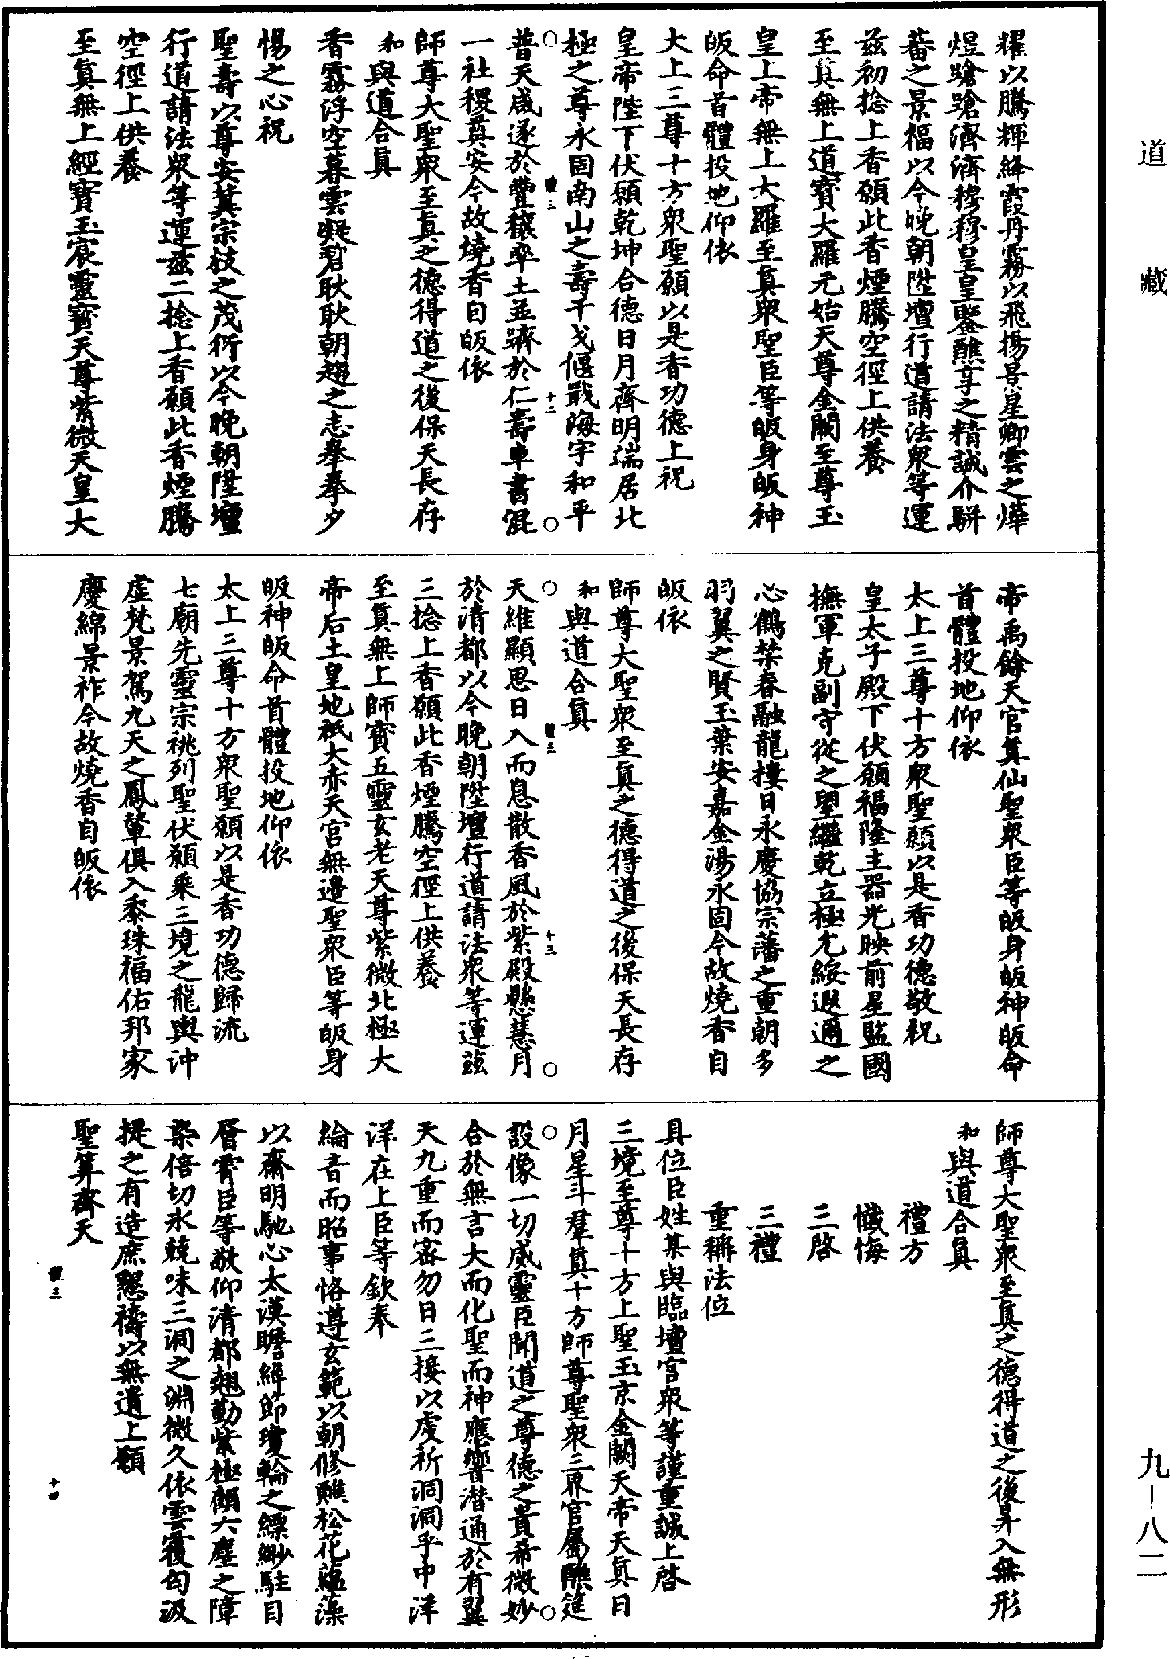 道藏
耀以騰輝絳霞丹霧以飛揚景星卿雲之燁
煜蹌蹌濟濟穆穆皇皇鑒醮享之精誠介駢
蕃之景福以今晚朝陞壇行道請法衆等運
兹初捻上香願此香煙騰空徑上供養
至真無上道寶大羅元始天尊金闕至尊玉
皇上帝無上大羅至真衆聖臣等皈身皈神
皈命首體投地仰依
太上三尊十方衆聖願以是香功德上祝
皇帝陛下伏願乾坤合德日月齊明端居北
極之尊永固南山之壽干戈偃戢海宇和平
普天咸遂於豐穰率土並躋於仁壽車書混
一社稷奠安今故燒香自皈依
師尊大聖衆至真之德得道之後保天長存
和與道合真
香霧浮空暮雲凝碧耿耿朝趨之志拳拳夕
惕之心祝
聖壽以尊安冀宗枝之茂衍以今晚朝陞壇
行道請法衆等運兹二捻上香願此香煙騰
空徑上供養
至真無上經寶玉宸靈寶天尊紫微天皇大
帝禹餘天官真仙聖衆臣等皈身皈神皈命
首體投地仰依
太上三尊十方衆聖願以是香功德敬祝
皇太子殿下伏願福隆主器光映前星監國
撫軍克副守從之望繼乾立極尤綏遐邇之
心鶴禁春融龍樓日永慶協宗藩之重朝多
羽翼之賢玉葉安嘉金湯永固今故燒香自
皈依
師尊大聖衆至真之德得道之後保天長存
和與道合真
天維顯思日入而息散香風於紫殿懸慧月
於清都以今晚朝陞壇行道請法衆等運兹
三捻上香願此香煙騰空徑上供養
至真無上師寶五靈玄老天尊紫微北極大
帝后土皇地祇大赤天宮無邊聖衆臣等皈身
皈神皈命首體投地仰依
太上三尊十方衆聖願以是香功德歸流
七廟先靈宗祧列聖伏願乘三境之龍輿沖
虚梵景駕九天之鳳輦俱入黍珠福佑邦家
慶綿景祚今故燒香自皈依
師尊大聖衆至真之德得道之後昇入無形
和與道合真
禮方
懺悔
三啓
三禮
重稱法位
具位臣姓某與臨壇官衆等謹重誠上啓
三境至尊十方上聖玉京金闕天帝天真日
月星斗羣真十方師尊聖衆三界官屬醮筵
設像一切威靈臣聞道之尊德之貴希微妙
合於無言大而化聖而神應響潛通於有翼
天九重而密勿日三接以虔祈洞洞乎中洋
洋在上臣等欽奉
綸音而昭事恪遵玄範以朝修雖松花蘊藻
以齋明馳心太漠瞻絳節瓊輪之縹緲駐目
層霄臣等敬仰清都翹勤紫極顧六塵之障
染倍切氷兢味三洞之淵微久依雲覆匄汲
提之有造庶懇禱以無遺上願
聖算齊天
九－八二